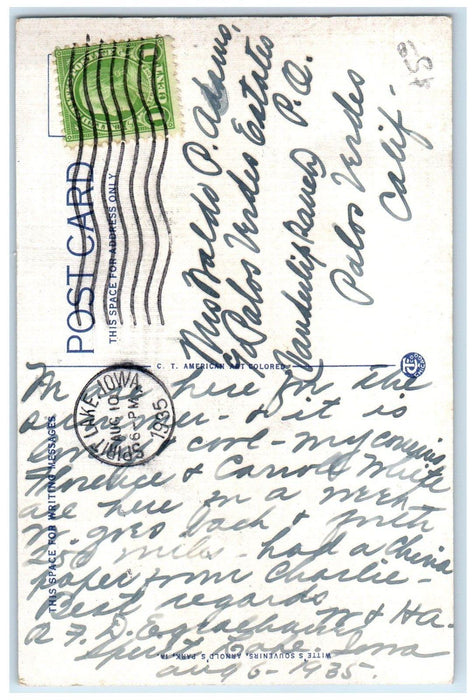 $5-
POST CARD
THIS SPACE FOR ADDRESS ONLY
Mrs Waldo P. Adams,
Palos Verdes Estates
Vanderlip Ranch P.O.
Palos Verdes
Calif-
C. T. AMERICAN ART COLORED
SPIRIT LAKE, IOWA
AUG 10
6-PM
1935
THIS SPACE FOR WRITING MESSAGES
here for the
summer - & it is
cool - my cousins
Florence & Carroll White
are here on a week
W. goes back & forth
200 miles - had a China
paper from Charlie -
Best regards
W & Ha.
R. F. D.
Spirit Lake - Iowa
Aug 6 - 1935.
WITT'S SOUVENIRS, ARNOLD'S PARK, IA.